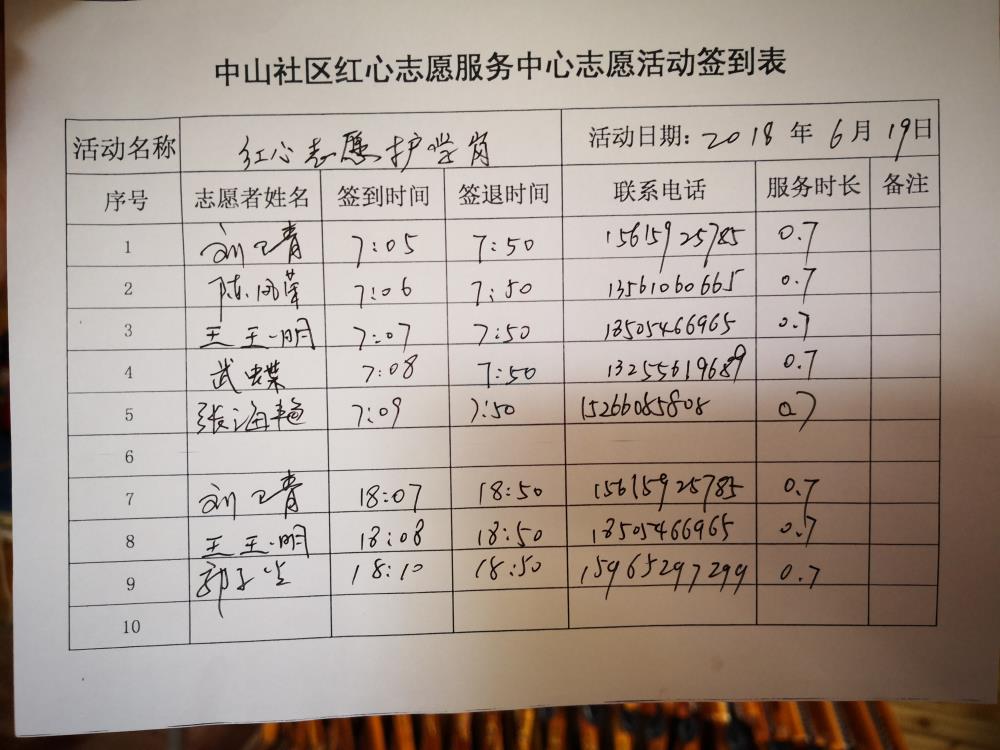 中山社区红心志愿服务中心志愿活动签到表
活动名称 红心志愿护学岗 活动日期: 2018 年 6 月 19日
序号 志愿者姓名 签到时间 签退时间 联系电话 服务时长 备注
1 刘卫青 7:05 7:50 15615925785 0.7
2 陈凤荣 7:06 7:50 13561060665 0.7
3 王玉明 7:07 7:50 18505466965 0.7
4 武蝶 7:08 7:50 13255619689 0.7
5 张海艳 7:09 7:50 15266085808 0.7
6
7 刘卫青 18:07 18:50 15615925785 0.7
8 王玉明 18:08 18:50 18505466965 0.7
9 18:10 18:50 15965297299 0.7
10